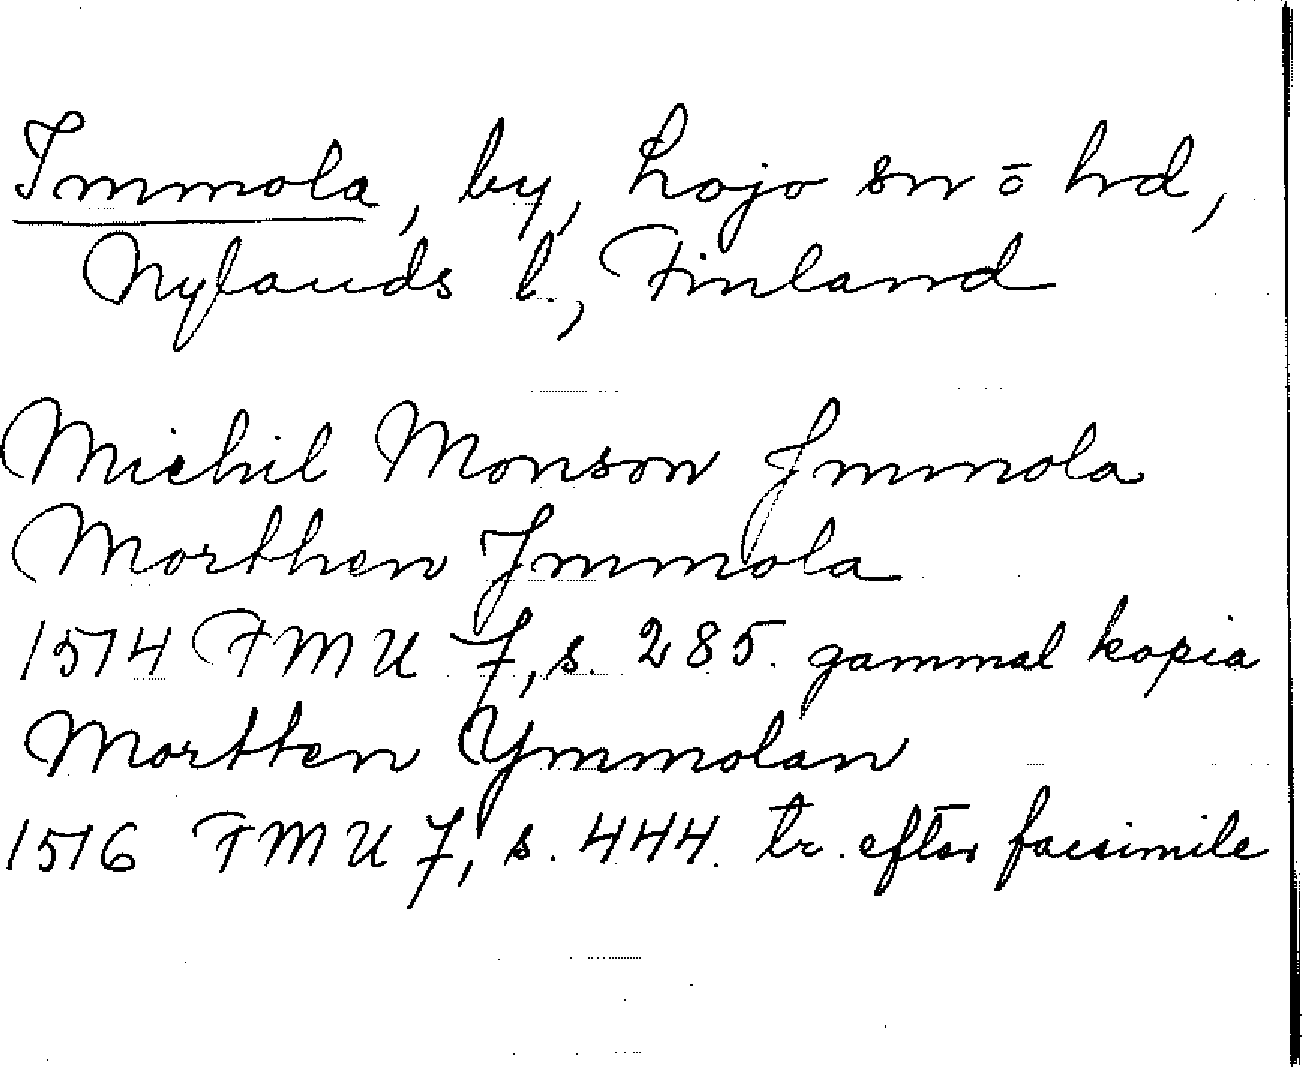 Immola, by, Lojo sn o hd,
Nylands l, Finland
Michil Monson Jmmola
Morthen Jmmola
1514 FMU 7, s. 285. gammal kopia
Mortten Ymmolan
1516 FMU 7, s. 444. tr. efter facsimile